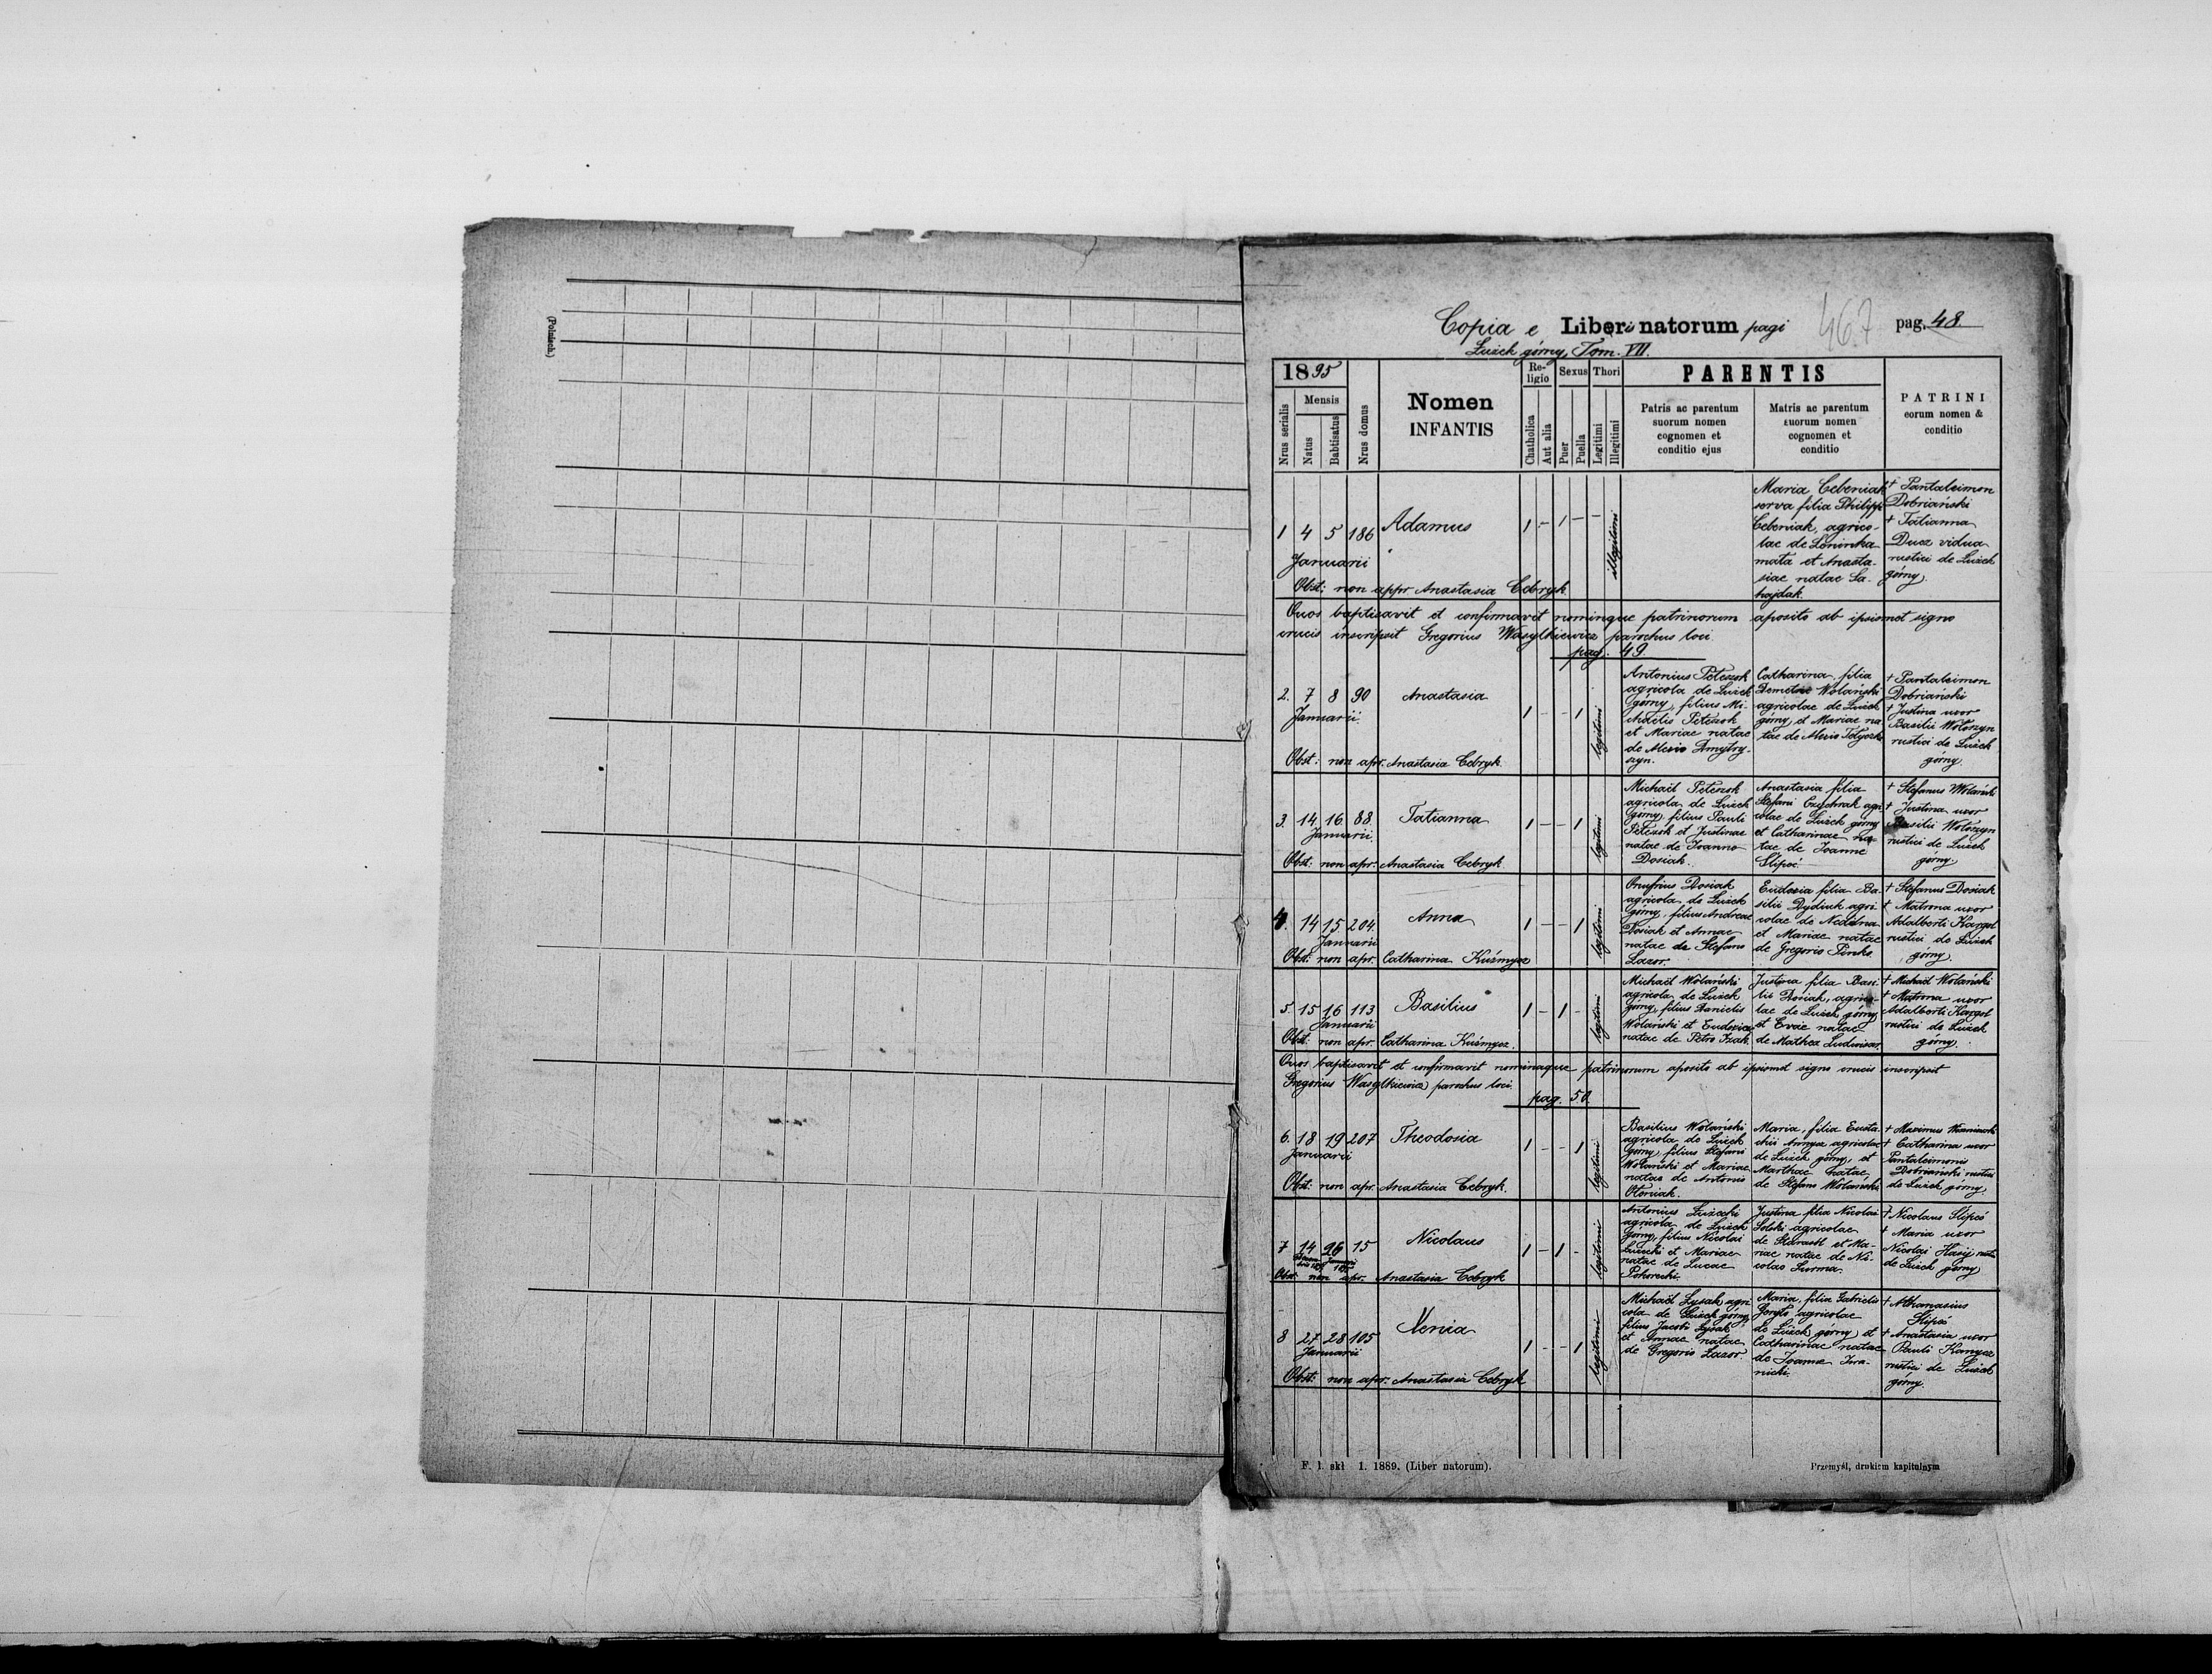 (Polnisch.)
Copia e Liberi natorum pagi 467 pag. 48
Łużek górny, Tom. VII.
1895
Nrus serialis
Mensis
Natus
Babtisatus
Nrus domus
Nomen
INFANTIS
Re-
ligio
Chatholica
Aut alia
Sexus
Puer
Puella
Thori
Legitimi
Illegitimi
PARENTIS
Patris ac parentum
suorum nomen
cognomen et
conditio ejus
Matris ac parentum
suorum nomen
cognomen et
conditio
PATRINI
eorum nomen &
conditio
1 4 5 186 Adamus 1 – 1 – –
Januarii
illegitimi
Maria Cebeniak
serva filia Philippi
Cebeniak, agrico-
lae de Loninka
mata et Anasta-
siae natae Sa-
hajdak.
† Pantaleimon
Dobriański
† Tatianna
Ducz vidua
rustici de Łużek
górny.
Obst: non appr Anastasia Cebryk
Quos baptisavit et confirmavit nominque patrinorum aposito ab ipsismet signo
crucis inscripsit Gregorius Wasylkiewicz parochus loci
pag. 49.
2. 7 8 90 Anastasia 1 – – 1
Januarii.
legitimi
Antonius Peteszok
agricola de Łużek
górny, filius Mi-
chaelis Peteszok
et Mariae natae
de Alexio Dmytry-
szyn.
Catharina, filia
Demetrii Wolański
agricolae de Łużek
górny, et Mariae na-
tae de Alexio
† Pantaleimon
Dobriański
† Justina uxor
Basilii Wołoszyn
rustici de Łużek
górny.
Obst: non apr. Anastasia Cebryk.
3. 14 16 88 Tatianna 1 – – 1
Januarii.
legitimi
Michaël Peteszok
agricola de Łużek
górny, filius Pauli
Peteszok et Justinae
natae de Joanno
Dosiak.
Anastasia filia
Stefani agri-
colae de Łużek górny
et Catharinae na-
tae de Joanne
Slipeć
† Stefanus Wolański
† Justina uxor
Basilii Wołoszyn
rustici de Łużek
górny.
Obst. non apr. Anastasia Cebryk.
4. 14 15 204. Anna 1 – – 1
Januarii
legitimi
Onufrius Dosiak
agricola de Łużek
górny, filius Andreae
Dosiak et Annae
natae de Stefano
Lazor.
Eudoxia filia Ba-
silii Dydiuk agri-
colae de Nedilna
et Mariae natae
de Gregorio Pinko.
† Stefanus Dosiak
† Matrona uxor
Adalberti Kargol
rustici de Łużek
górny.
Obst. non apr. Catharina Kuźmycz
5. 15 16 113 Basilius 1 – 1 –
Januarii
legitimi
Michaël Wolański
agricola de Łużek
górny, filius Danielis
Wolański et Eudoxiae
natae de Petro Izak.
Justina filia Basi-
lii Dosiak, agrico-
lae de Łużek górny
et Evae natae
de Mathea
† Michaël Wolański
† Matrona uxor
Adalberti Kargol
rustici de Łużek
górny.
Obst. non apr. Catharina Kuźmycz.
Quos baptisavit et confirmavit nominaque patrinorum aposito ab ipsismet signo crucis inscripsit
Gregorius Wasylkiewicz parochus loci.
pag. 50.
6. 18 19 207 Theodosia 1 – – 1
Januarii
legitimi
Basilius Wolański
agricola de Łużek
górny, filius Stefani
Wolański et Mariae
natae de Antonio
Oleniak.
Maria, filia Eusta-
chii agricolae
de Łużek górny, et
Marthae natae
de Stefano Wolański
† Maximus
† Catharina uxor
Pantaleimonis
Dobriański rustici
de Łużek górny.
Obst. non apr. Anastasia Cebryk.
7 14 26 15 Nicolaus 1 – 1 –
Januarii
legitimi
Antonius Łużecki
agricola de Łużek
górny, filius Nicolai
Łużecki et Mariae
natae de Lucae
Pohorecki.
Justina filia Nicolai
Solski agricolae
de Starasół et Ma-
riae natae de Ni-
colao Surma.
† Nicolaus Slipeć
† Maria uxor
Nicolai
de Łużek górny
Obst. non apr. Anastasia Cebryk
8 27 28 105 Xenia 1 – – 1
Januarii
legitimi
Michaël Lysak agri-
cola de Łużek górny,
filius Jacobi Lysak
et Annae natae
de Gregorio Lazor.
Maria, filia Gabrielis
agricolae
de Łużek górny, et
Catharinae natae
de Joanne Iwa-
nicki.
† Athanasius
Slipeć
† Anastasia uxor
Pauli Kanycz
rustici de Łużek
górny.
Obst. non apr. Anastasia Cebryk
F. l. skł 1. 1889. (Liber natorum).
Przemyśl, drukiem kapitulnym